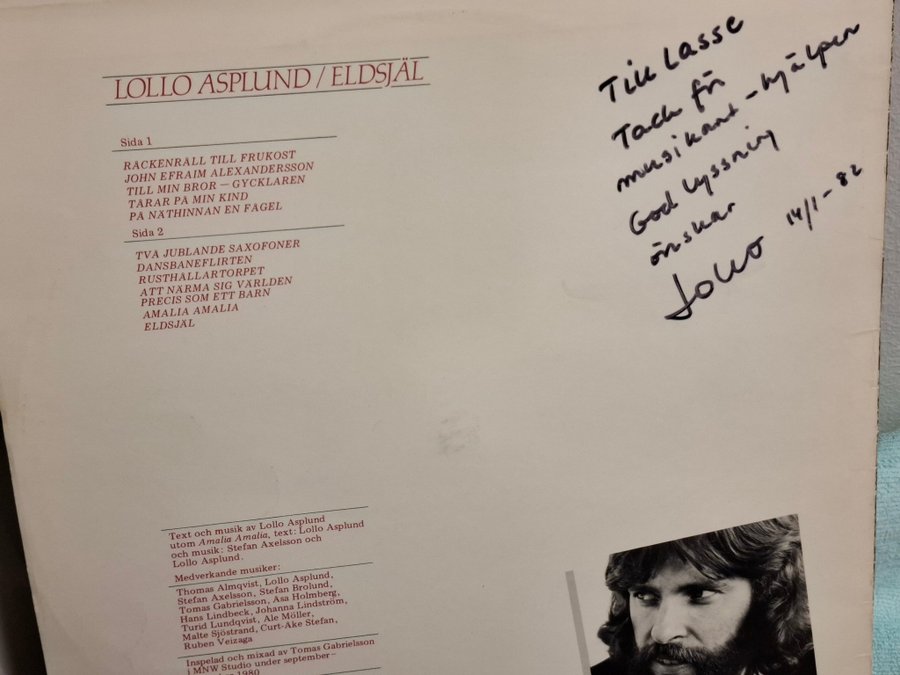 LOLLO ASPLUND / ELDSJÄL
Sida 1
RACKENRALL TILL FRUKOST
JOHN EFRAIM ALEXANDERSSON
TILL MIN BROR — GYCKLAREN
TÅRAR PÅ MIN KIND
PÅ NÄTHINNAN EN FÅGEL
Sida 2
TVÅ JUBLANDE SAXOFONER
DANSBANEFLIRTEN
RUSTHÅLLARTORPET
ATT NÄRMA SIG VÄRLDEN
PRECIS SOM ETT BARN
AMALIA AMALIA
ELDSJÄL
Till Lasse
Tack för
musikant-hjälpen
God lyssning
önskar
Lollo 14/1-82
Text och musik av Lollo Asplund
utom Amalia Amalia, text: Lollo Asplund
och musik: Stefan Axelsson och
Lollo Asplund.
Medverkande musiker:
Thomas Almqvist, Lollo Asplund,
Stefan Axelsson, Stefan Brolund,
Tomas Gabrielsson, Åsa Holmberg,
Hans Lindbeck, Johanna Lindström,
Turid Lundqvist, Ale Möller,
Malte Sjöstrand, Curt-Åke Stefan,
Ruben Veizaga
Inspelad och mixad av Tomas Gabrielsson
i MNW Studio under september–
1980